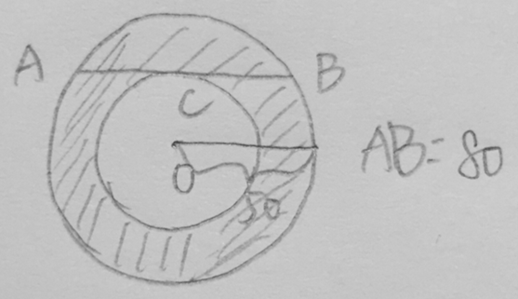 A
B
C
O
50
AB=80